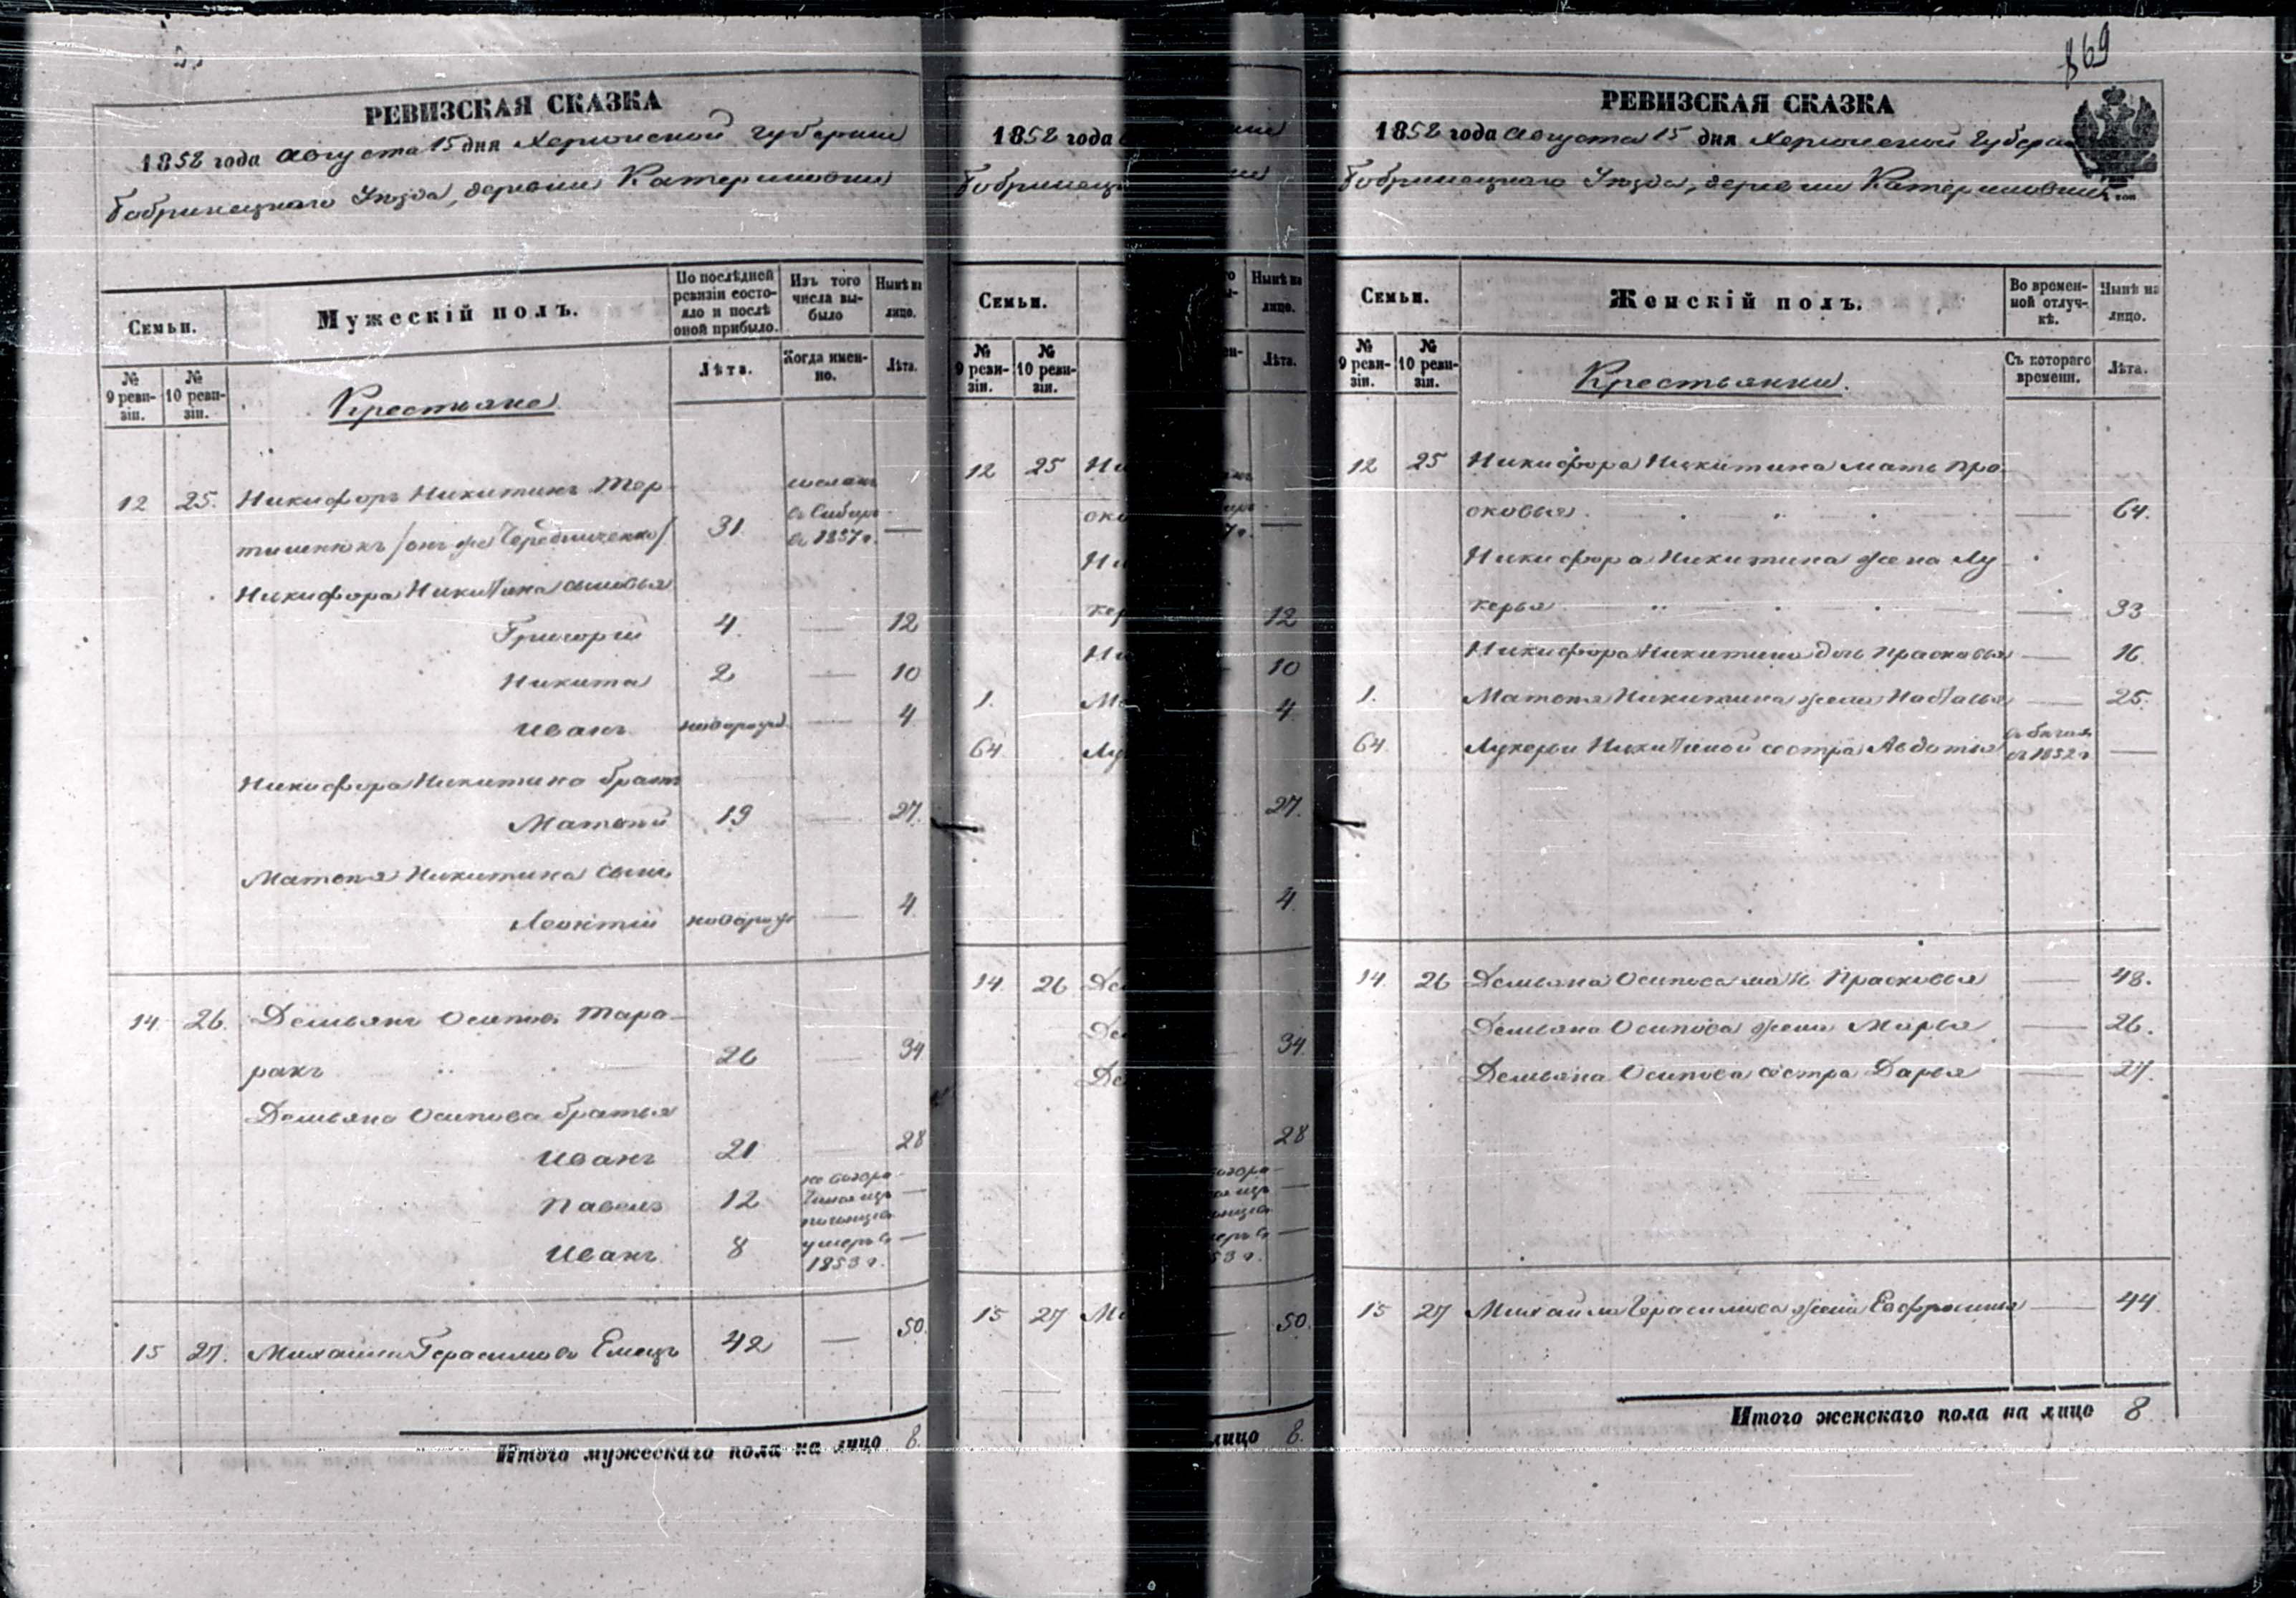 869
РЕВИЗСКАЯ СКАЗКА
1858 года Августа 15 дня Херсонской Губернии
Бобринецкаго Уезда, деревни Катериновки
Семьи.
Мужескій полъ.
По послѣдней ревизіи состояло и послѣ оной прибыло.
Изъ того числа выбыло
Нынѣ на лицо.
№ 9 ревизіи.
№ 10 ревизіи.
Крестьяне
Лѣта.
Когда именно.
Лѣта.
12 25. Никифоръ Никитинъ Тер-
тишнюкъ /онъ же Чередниченко/ 31 сосланъ въ Сибирь въ 1857 г. —
Никифора Никитина сыновья
Григорій 4 — 12
Никита 2 — 10
Иванъ новорожд. — 4
Никифора Никитина братъ
Матвѣй 19 — 27.
Матвѣя Никитина сынъ
Леонтій новорож — 4
14 26. Демьянъ Осиповъ Тара-
ракъ 26 — 34
Демьяна Осипова братья
Иванъ 21 — 28
Павелъ 12 —
Иванъ 8 умеръ въ 1853 г. —
15 27. Михайла Герасимовъ Емецъ 42 — 50.
Итого мужескаго пола на лицо 8.
1858 года
Бобринецк
Семьи.
Нынѣ на лицо.
№ 9 ревизіи.
№ 10 ревизіи.
Лѣта.
12 25 Ни
око
Ни
кер 12
Ни 10
1. Ма 4
64 Лу
27.
4.
14 26 Де
Де 34.
Де
28
15 27 Ми 50.
лицо 8.
РЕВИЗСКАЯ СКАЗКА
1858 года Августа 15 дня Херсонской Губерни
Бобринецкаго Уезда, деревни Катериновки
Семьи.
Женскій полъ.
Во временной отлучкѣ.
Нынѣ на лицо.
№ 9 ревизіи.
№ 10 ревизіи.
Крестьянки.
Съ котораго времени.
Лѣта.
12 25 Никифора Никитина мать Пра-
сковья — 64.
Никифора Никитина жена Лу-
керья — 33
Никифора Никитина дочь Прасковья — 16.
1. Матвѣя Никитина жена Наталья — 25.
64. Лукерьи Никитиной сестра Авдотья въ бѣгахъ съ 1852 г —
14. 26 Демьяна Осипова мать Прасковья — 48.
Демьяна Осипова жена Марья — 26.
Демьяна Осипова сестра Дарья — 27.
15 27 Михайла Герасимова жена Евфросинья — 44
Итого женскаго пола на лицо 8